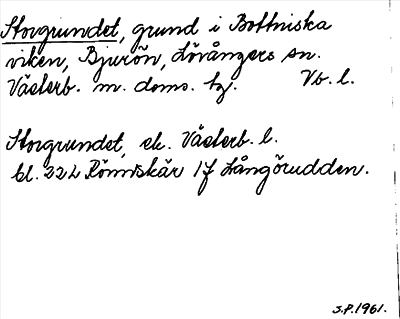 Storgrundet, grund i Bottniska
viken, Bjurön, Lövångers sn.
Västerb. m. doms. tg. Vb. l.
Storgrundet, ek. Västerb. l.
bl. 22L Rönnskär 1f Långörudden.
S.P. 1961.